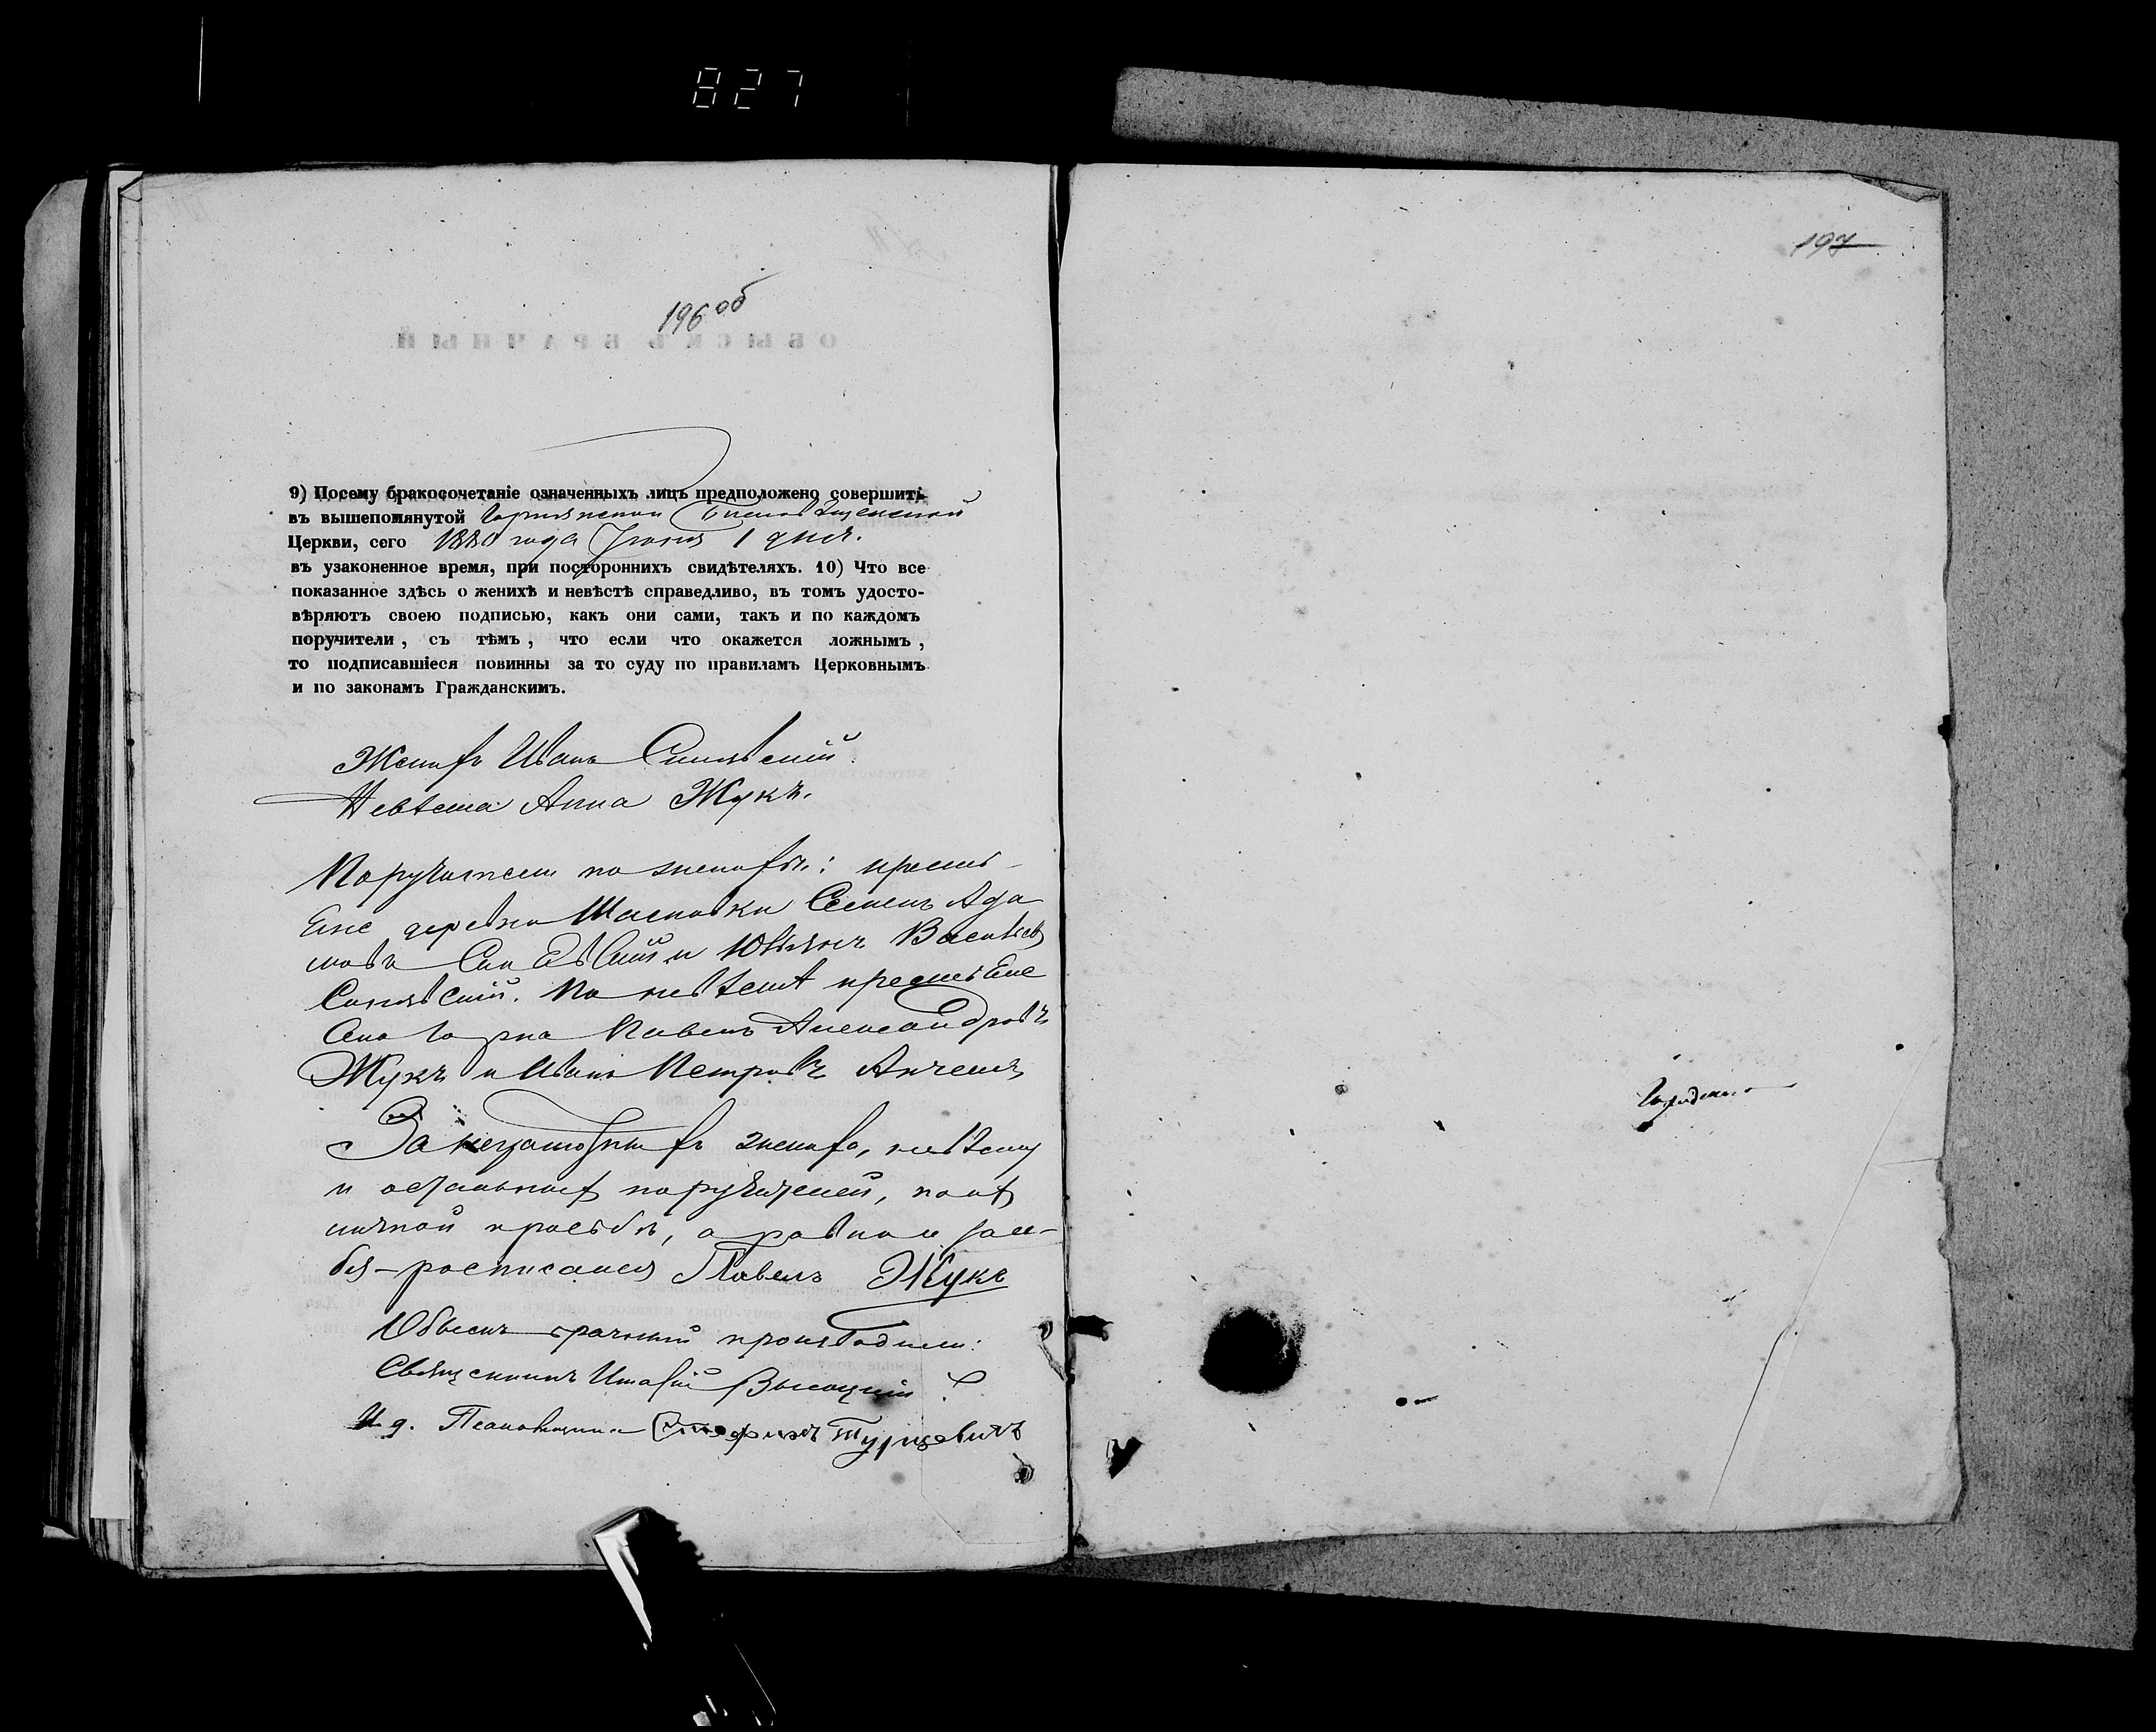 827
196 об
9) Посему бракосочетаніе означенныхъ лицъ предположено совершить
въ вышепомянутой
Церкви, сего 1880 года Іюня 1 дня.
въ узаконенное время, при постороннихъ свидѣтеляхъ. 10) Что все
показанное здѣсь о женихѣ и невѣстѣ справедливо, въ томъ удосто-
вѣряютъ своею подписью, какъ они сами, такъ и по каждомъ
поручители, съ тѣмъ, что если что окажется ложнымъ,
то подписавшіеся повинны за то суду по правиламъ Церковнымъ
и по законамъ Гражданскимъ.
Женихъ Иванъ Синявскій.
Невѣста Анна Жукъ.
Поручители по женихѣ: кресть-
яне деревни Семенъ Ада
мовъ Синявскій и
Синявскій. По невѣстѣ крестьяне
Села Павелъ Александровъ
Жукъ и Иванъ Петровъ
За неграмотныхъ жениха, невѣсту
и остальныхъ поручителей, по ихъ
личной просьбѣ, а равно и за се-
бя - росписался Павелъ Жукъ
Обыскъ брачный производили:
Священникъ Высоцкій
И. д. Псаломщика Турцевичъ
197